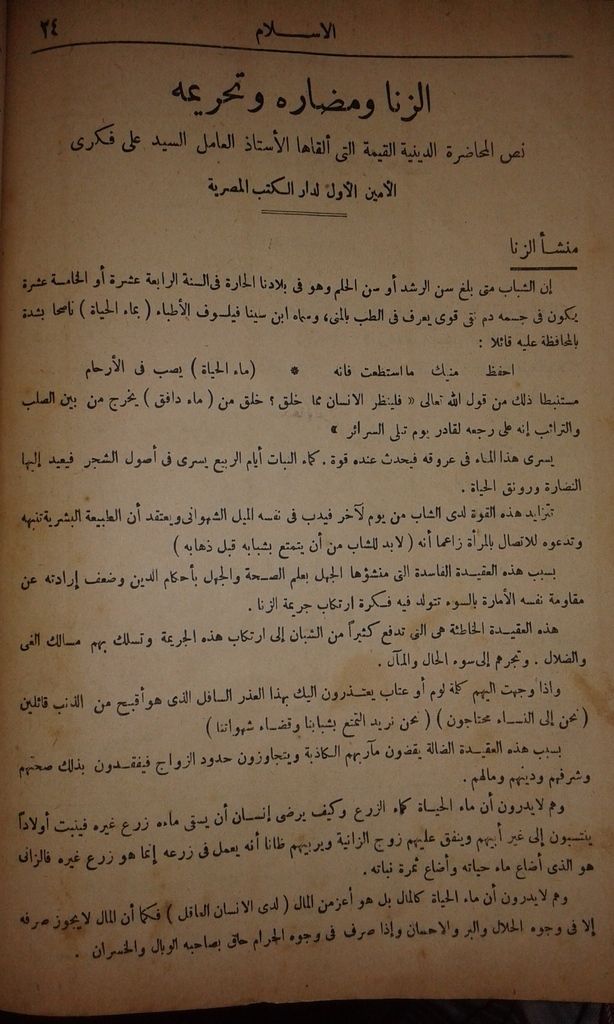 ٢٤
الاســـلام
الزنا ومضاره وتحريمه
نص المحاضرة الدينية القيمة التى ألقاها الأستاذ العامل السيد على فكرى
الأمين الأول لدار الكتب المصرية
منشأ الزنا
إن الشباب متى بلغ سن الرشد أو سن الحلم وهو فى بلادنا الحارة فى السنة الرابعة عشرة أو الخامسة عشرة
يكون فى جسمه دم نقى قوى يعرف فى الطب بالمنى، وسماه ابن سينا فيلسوف الأطباء ( بماء الحياة ) ناصحا بشدة
بالمحافظة عليه قائلا :
احفظ منيك ما استطعت فانه * (ماء الحياة) يصب فى الأرحام
مستنبطا ذلك من قول الله تعالى « فلينظر الانسان مما خلق ؟ خلق من ( ماء دافق ) يخرج من بين الصلب
والترائب إنه على رجعه لقادر يوم تبلى السرائر »
يسرى هذا الماء فى عروقه فيحدث عنده قوة . كماء النبات أيام الربيع يسرى فى أصول الشجر فيعيد إليها
النضارة ورونق الحياة .
تتزايد هذه القوة لدى الشاب من يوم لآخر فيدب فى نفسه الميل الشهوانى ويعتقد أن الطبيعة البشرية تنبهه
وتدعوه للاتصال بالمرأة زاعما أنه ( لابد للشاب من أن يتمتع بشبابه قبل ذهابه )
بسبب هذه العقيدة الفاسدة التى منشؤها الجهل بعلم الصحة والجهل بأحكام الدين وضعف إرادته عن
مقاومة نفسه الأمارة بالسوء تتولد فيه فكرة ارتكاب جريمة الزنا .
هذه العقيدة الخاطئة هى التى تدفع كثيراً من الشبان إلى ارتكاب هذه الجريمة وتسلك بهم مسالك الغى
والضلال . وتجرهم إلى سوء الحال والمآل .
واذا وجهت اليهم كلمة لوم أو عتاب يعتذرون اليك بهذا العذر السافل الذى هو أقبح من الذنب قائلين
( نحن إلى النساء محتاجون ) ( نحن نريد التمتع بشبابنا وقضاء شهواتنا )
بسبب هذه العقيدة الضالة يقضون مآربهم الكاذبة ويتجاوزون حدود الزواج فيفقدون بذلك صحتهم
وشرفهم ودينهم ومالهم .
وهم لا يدرون أن ماء الحياة كماء الزرع وكيف يرضى إنسان أن يسقى ماءه زرع غيره فينبت أولاداً
ينتسبون إلى غير أبيهم وينفق عليهم زوج الزانية ويربيهم ظانا أنه يعمل فى زرعه إنما هو زرع غيره فالزانى
هو الذى أضاع ماء حياته وأضاع ثمرة نباته .
وهم لا يدرون أن ماء الحياة كالمال بل هو أعز من المال ( لدى الانسان العاقل ) فكما أن المال لا يجوز صرفه
إلا فى وجوه الحلال والبر والاحسان وإذا صرف فى وجوه الحرام حاق بصاحبه الوبال والخسران .